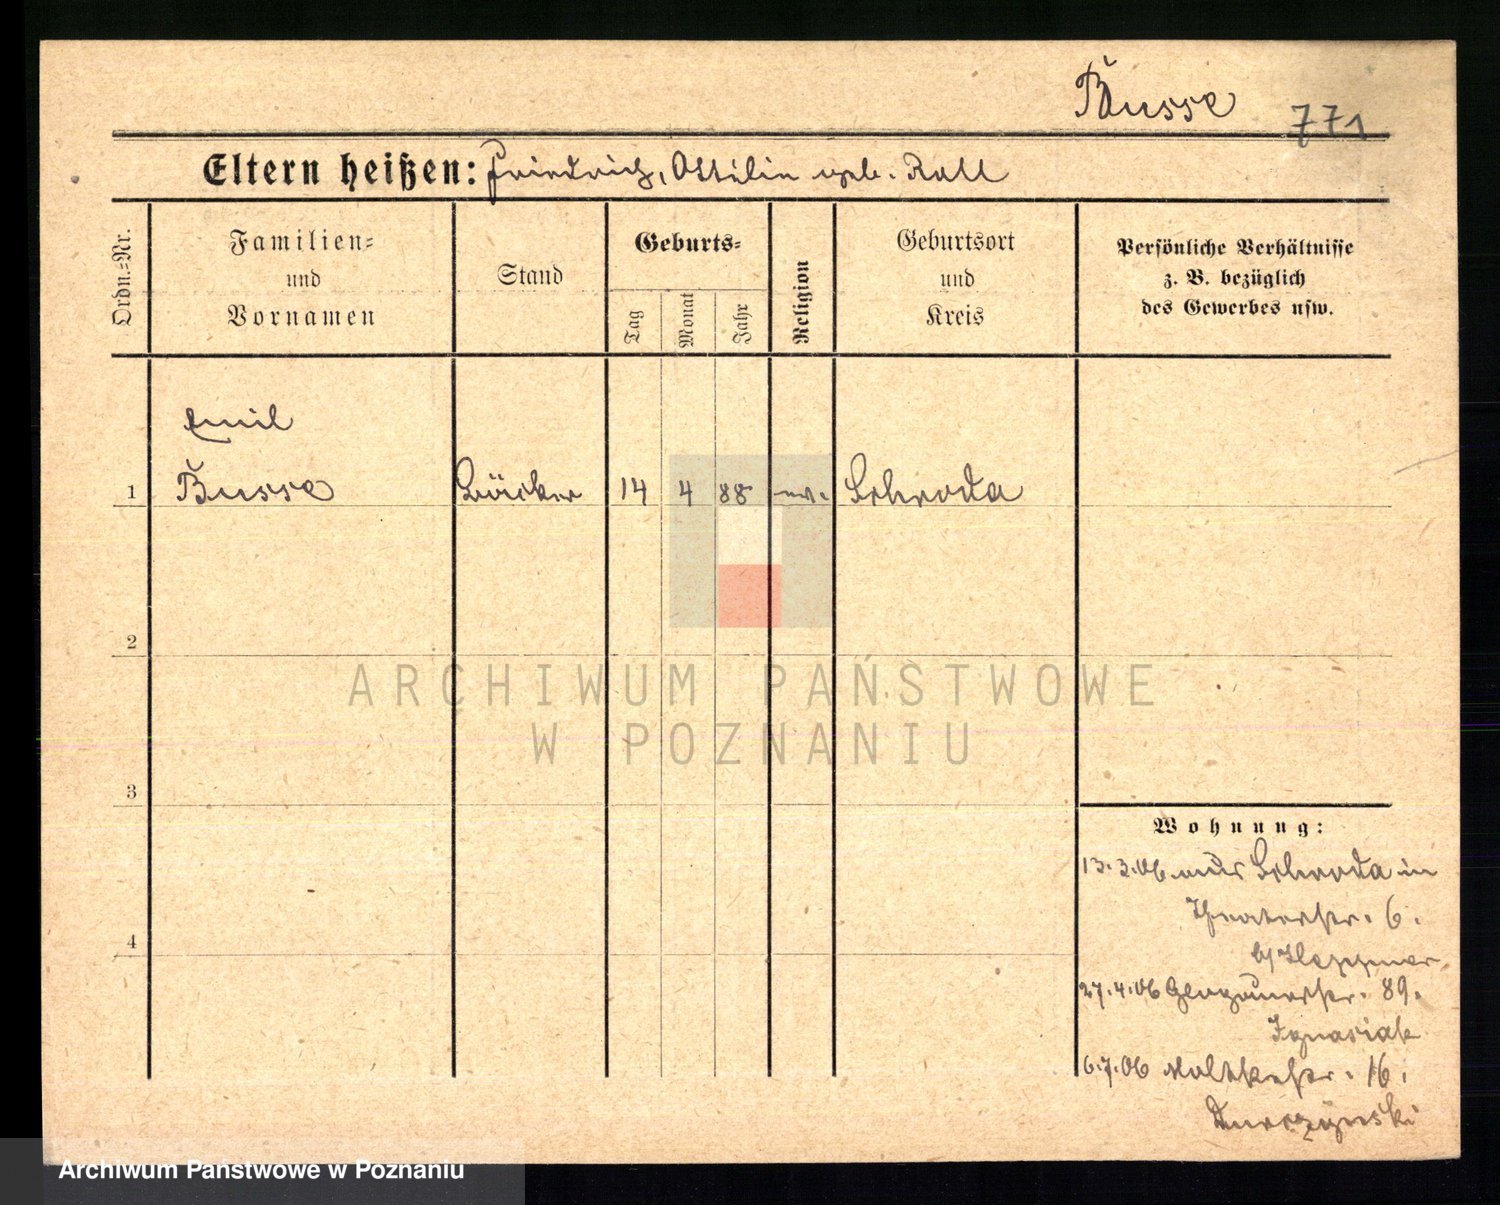 Busse 771
Eltern heißen: Friedrich, Ottilie geb. Rall
Ordn.-Nr.
Familien-
und
Vornamen
Stand
Geburts-
Tag
Monat
Jahr
Religion
Geburtsort
und
Kreis
Persönliche Verhältnisse
z. B. bezüglich
des Gewerbes usw.
Emil
1 Busse Bäcker 14 4 88 ev. Schroda
2
3
4
Wohnung:
13.3.06 aus Schroda in
Theaterstr. 6.
b/ Heppner
27.4.06 Glogauerstr. 89.
Ignasiak
6.7.06 Moltkestr. 16.
ARCHIWUM PAŃSTWOWE
W POZNANIU
Archiwum Państwowe w Poznaniu